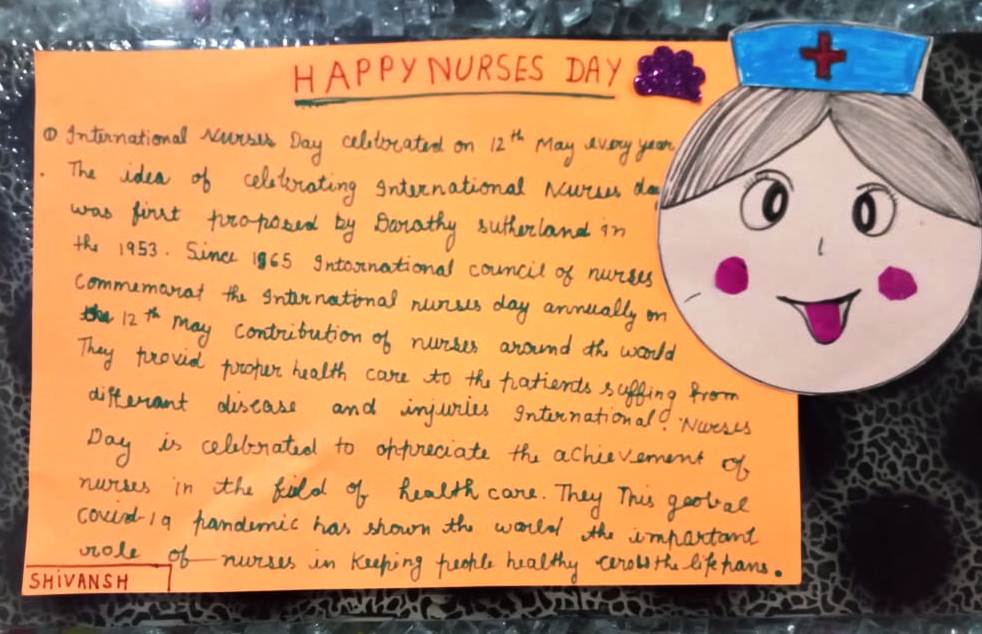 HAPPY NURSES DAY
① International Nurses Day celebrated on 12th May every year
. The idea of celebrating International Nurses day
was first proposed by Darathy sutherland in
the 1953. Since 1965 International council of nurses
Commemarat the International nurses day annually on
the 12th May contribution of nurses around the world
They provid proper health care to the patients suffing from
differant disease and injuries International. Nurses
Day is celebrated to appreciate the achievement of
nurses in the field of health care. They This geobal
Covid-19 pandemic has shown the world the important
role of nurses in Keeping people healthy the life pans.
SHIVANSH